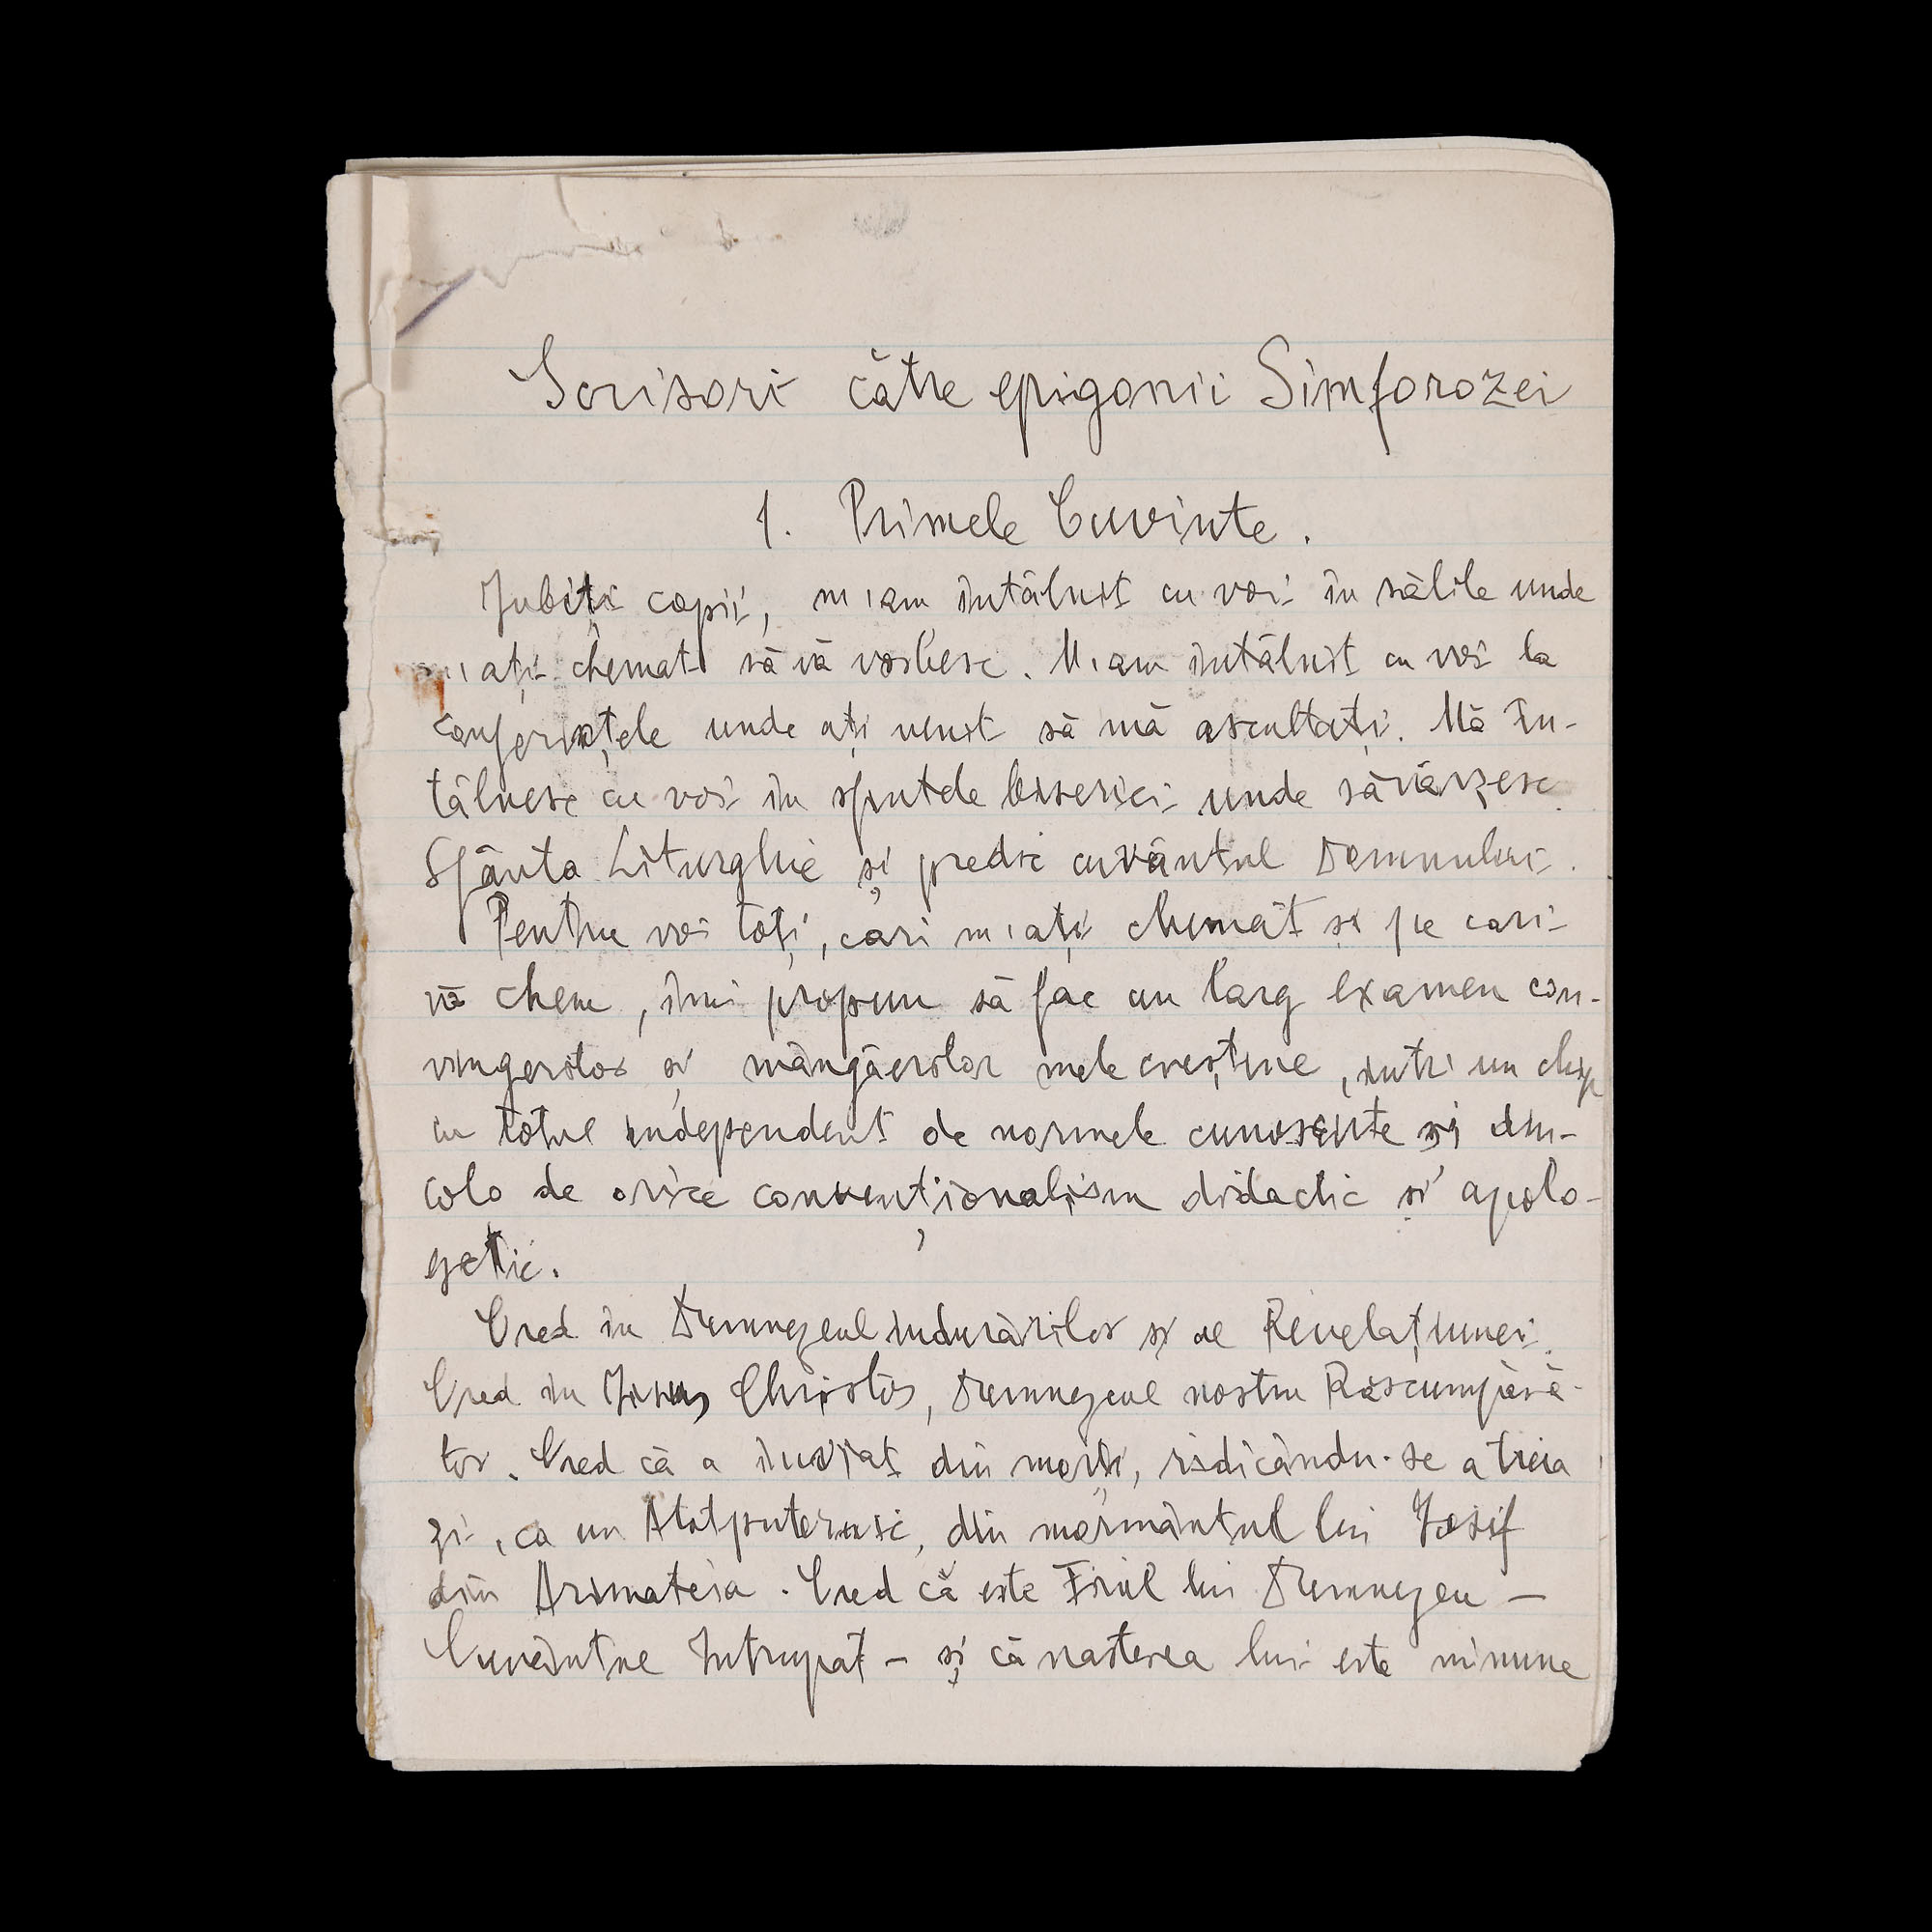 Scrisori către epigonii Simforozei
1. Primele Cuvinte.
Iubiți copii, m'am întâlnit cu voi în sălile unde
m'ați chemat să vă vorbesc. M'am întâlnit cu voi la
conferințele unde ați venit să mă ascultați. Mă în-
tâlnesc cu voi în sfintele biserici unde săvârșesc
Sfânta Liturghie și predic cuvântul Domnului.
Pentru voi toți, cari m'ați chemat și pe cari
vă chem, îmi propun să fac un larg examen con-
vingerilor și mângâerilor mele creștine, într'un chip
cu totul independent de normele cunoscute și din-
colo de orice convenționalism didactic și apolo-
getic.
Cred în Dumnezeul îndurărilor și al Revelațiunei.
Cred în Iisus Christos, Dumnezeul nostru Răscumpără-
tor. Cred că a înviat din morți, ridicându-se a treia
zi, ca un Atotputernic, din mormântul lui Iosif
din Arimateia. Cred că este Fiiul lui Dumnezeu –
Cuvântul Intrupat – și că nașterea lui este minune